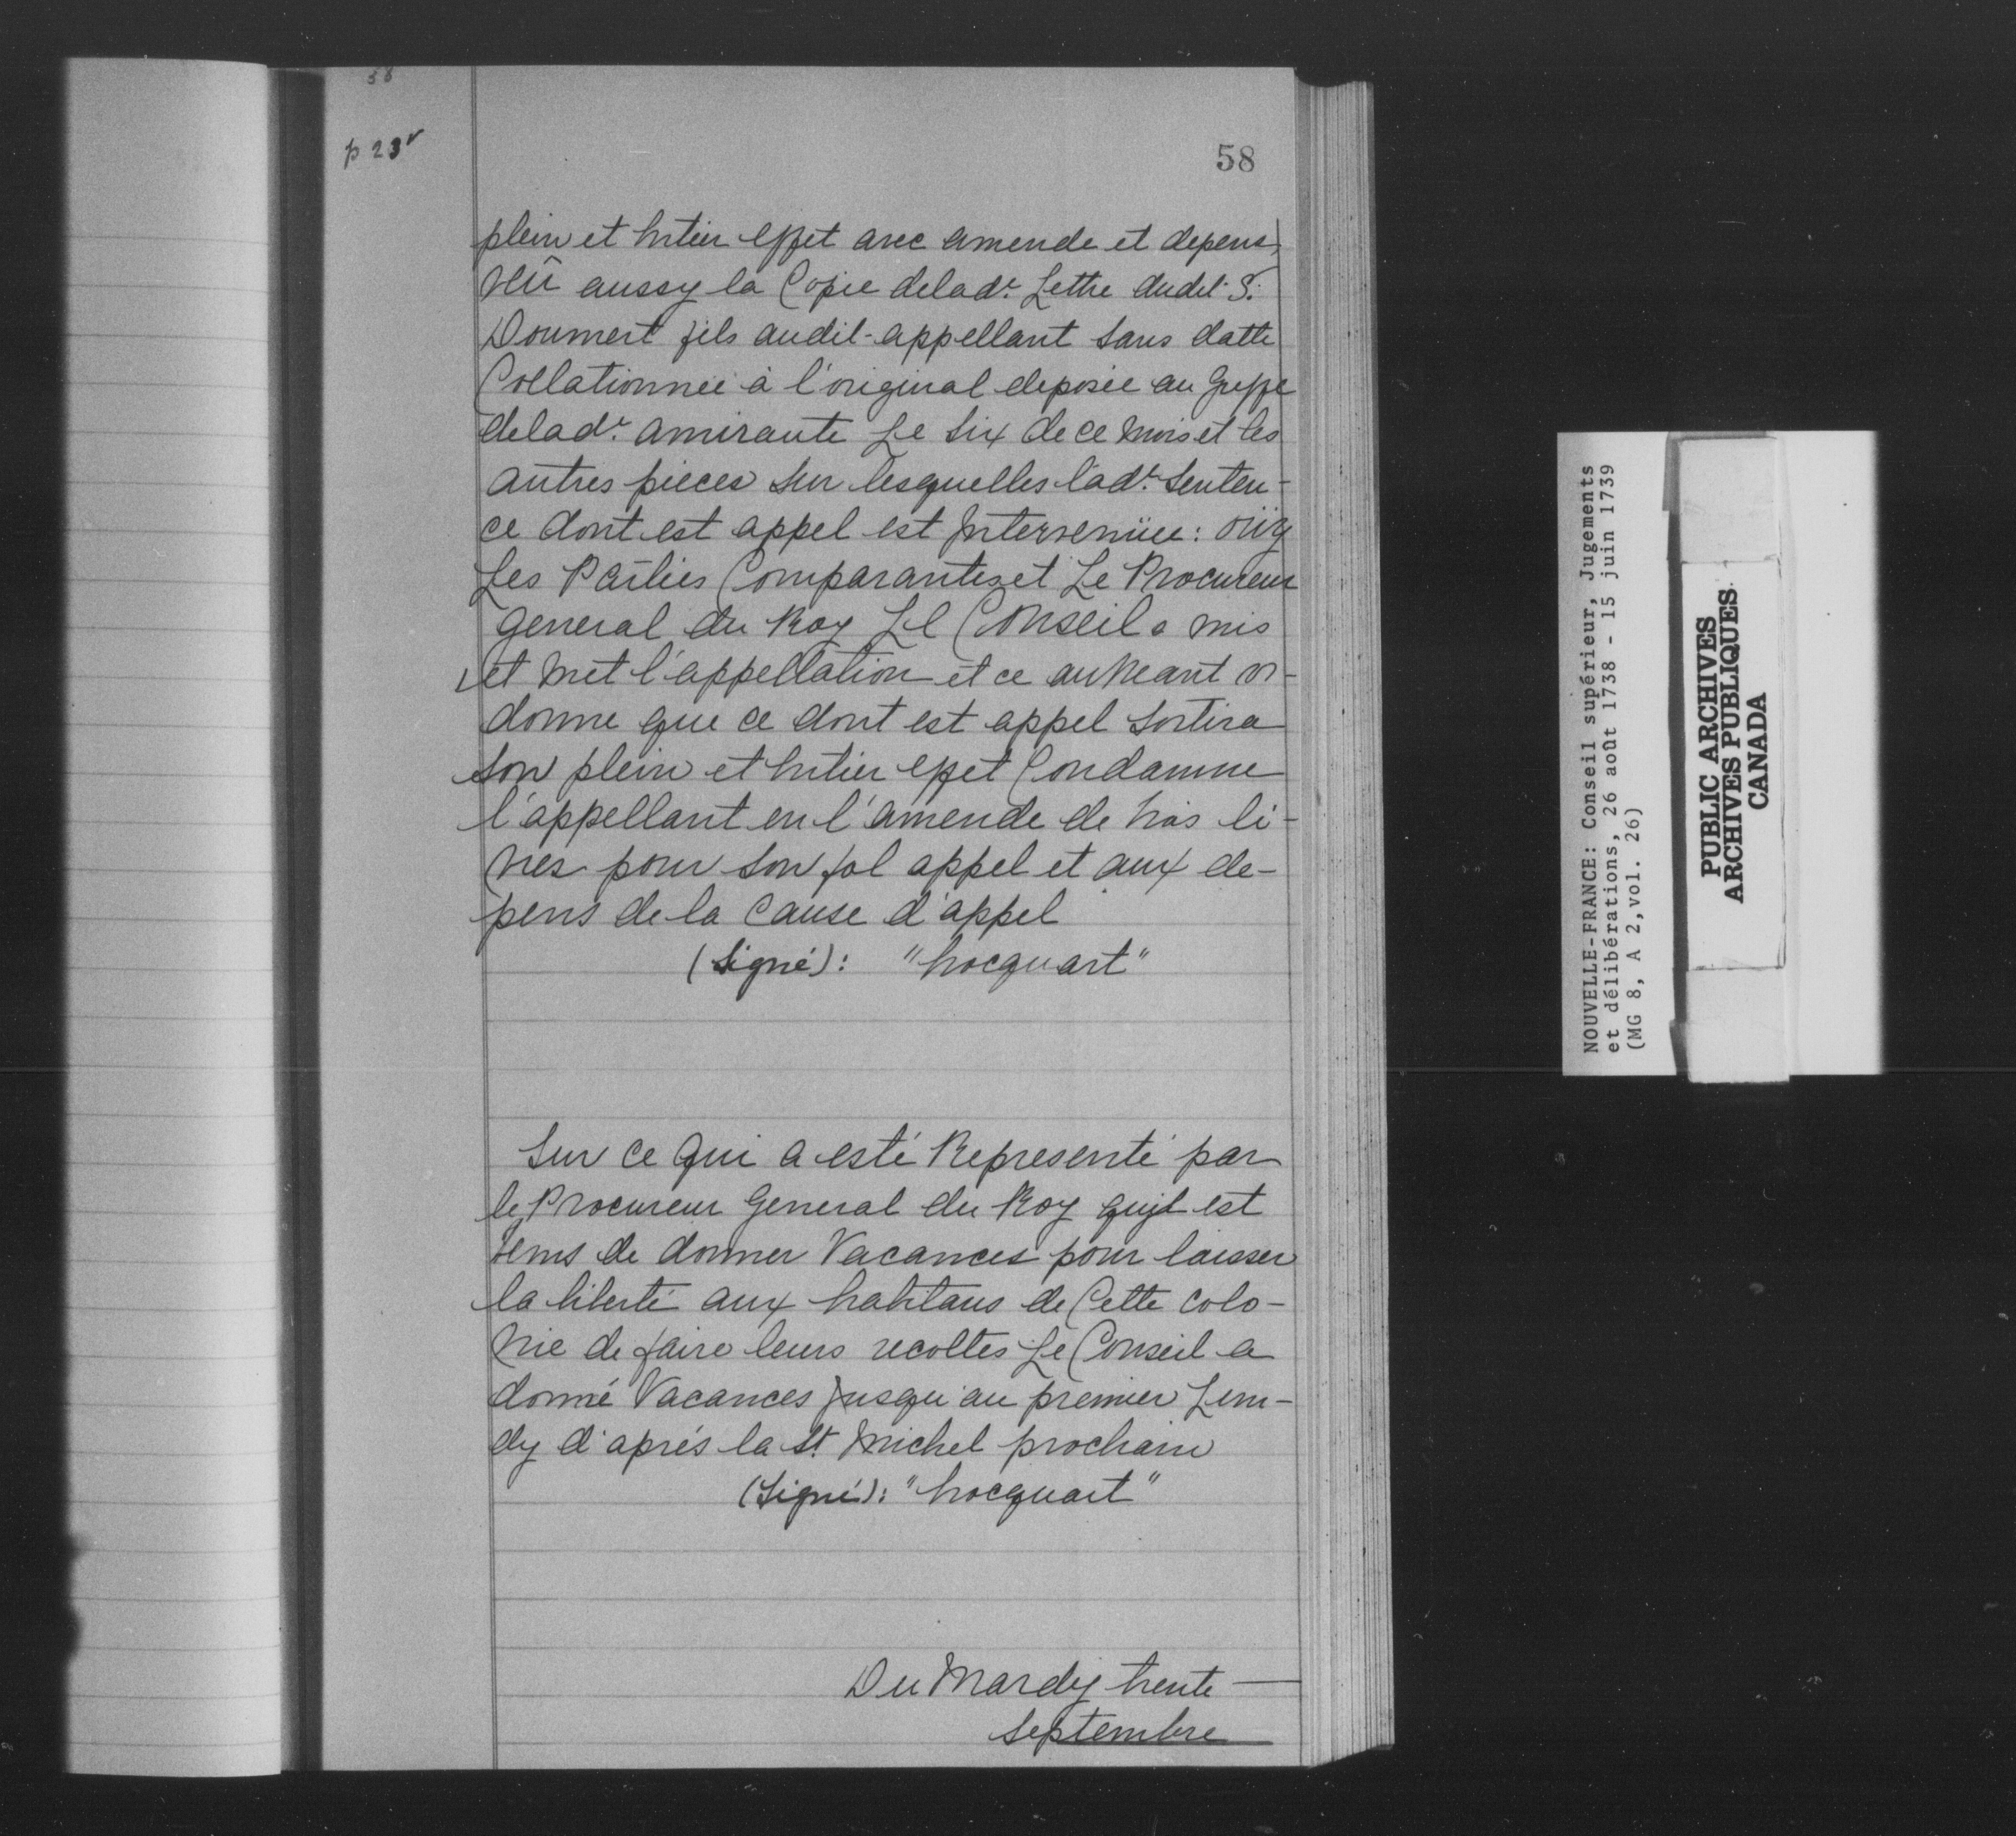 38
p 23v
58
plein et Entier effet avec amende et depens,
Veû aussy la Copie delade. Lettre dudit S.
Doumert fils audit appellant sans datte
Collationnée à l'original deposée au Greffe
delade. amirauté Le Six de ce mois et les
autres pieces Sur lesquelles lade. Senten-
ce dont est appel est Intervenüe: oüy
Les Parties Comparantes et Le Procureur
General du Roy Le Conseil a mis
et met l'appellation et ce au Neant or-
donne que ce dont est appel Sortira
son plein et Entier effet Condamne
l'appellant en l'amende de trois li-
vres pour son fol appel et aux de-
pens de la Cause d'appel
(Signé): "hocquart"
Sur ce qui a esté Representé par
le Procureur General du Roy qujl est
tems de donner Vacances pour laisser
la liberté aux habitans de Cette colo-
nie de faire leurs recoltes Le Conseil a
donné Vacances Jusqu'au premier Lun-
dy d'aprés la St. Michel prochain
(Signé): "hocquart"
Du Mardy trente
Septembre
NOUVELLE-FRANCE: Conseil supérieur, Jugements
et délibérations, 26 août 1738 - 15 juin 1739
(MG 8, A 2,vol. 26)
PUBLIC ARCHIVES
ARCHIVES PUBLIQUES
CANADA